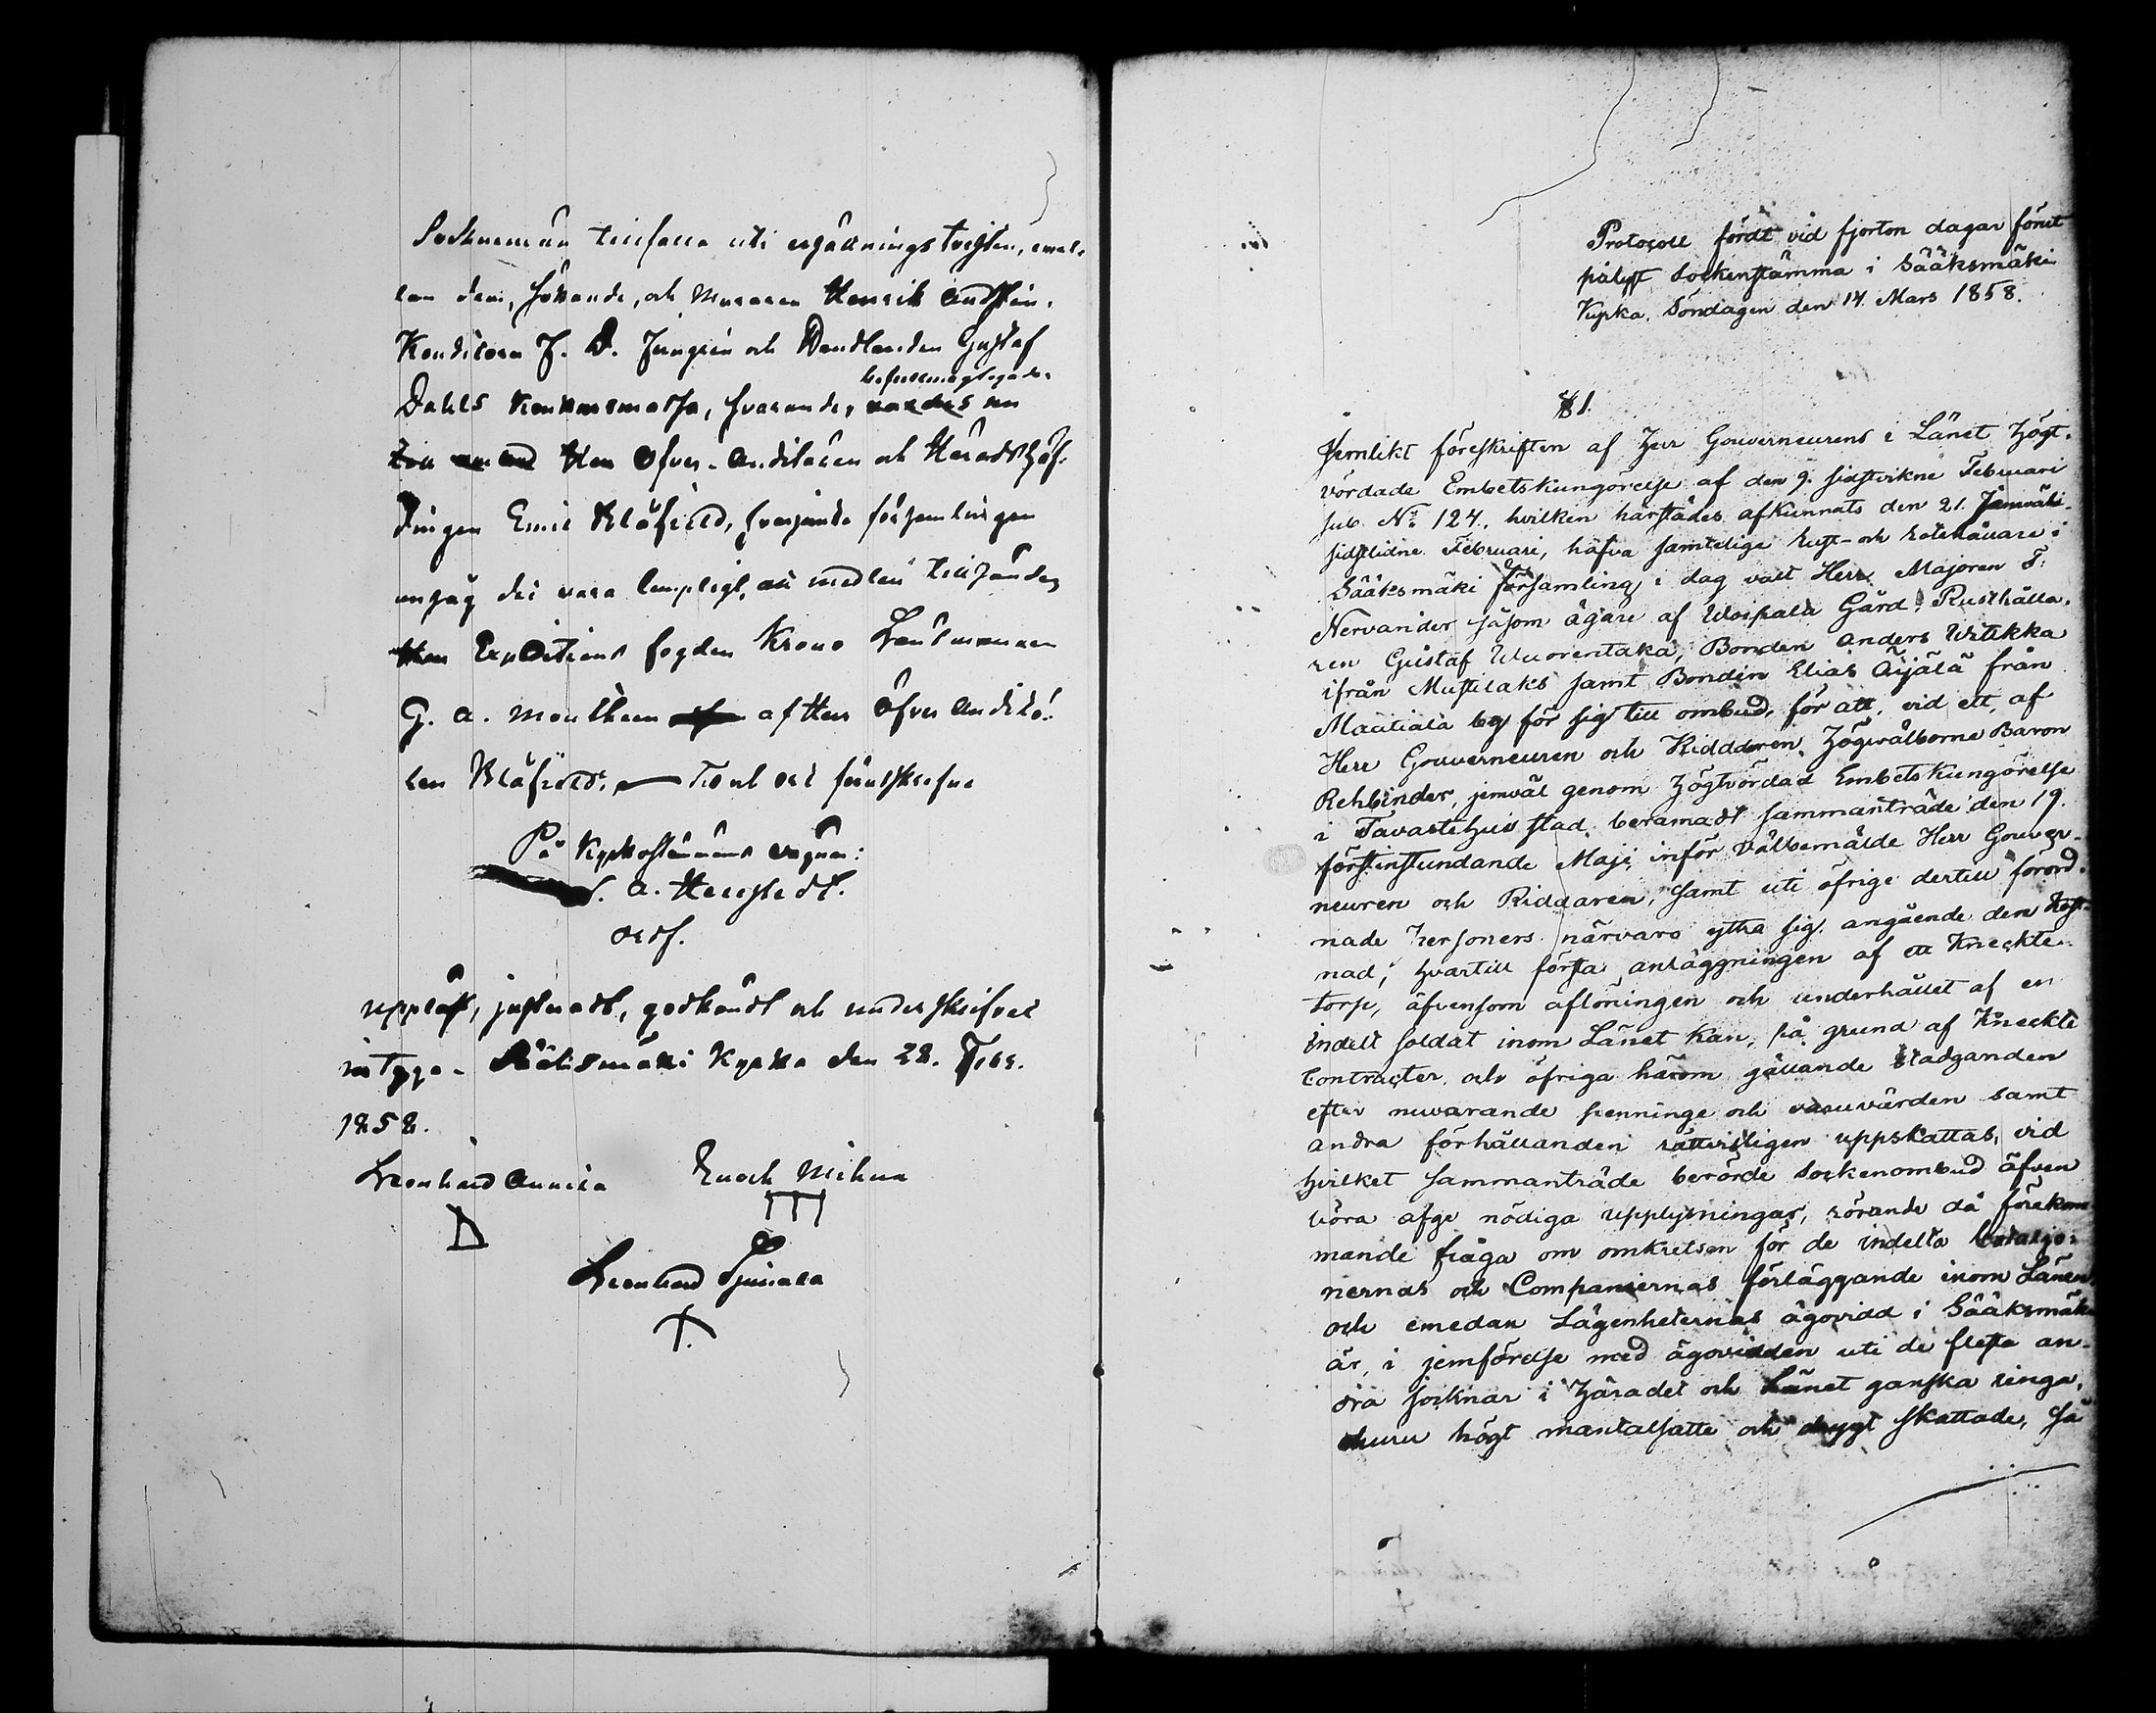 Sockneman tillfalla uti ersättnings tvisten, emel-
lan dem, sökande, och Muraren Henrik Andstén,
Konditorn J. D. Jungrén och Handlanden Gustaf
befullmägtigade
Dahls Konkursmassa, svarande,
Herr Öfver-Auditören och Häradshöf-
dingen Emil Blåfield, hvarjemte församlingen
ansåg det vara lämpligt, att medlen tillsändes
Expeditions fogden Krono Länsmannen
G. A. Monthén af Herr Öfver Auditö-
ren Blåfield. — Tid och ort förutskrefne
På Kyrkostämmans vägnar:
A. Hellstedt.
ordf.
Uppläst, justeradt, godkändt och underskrifvet
intyga. Sääksmäki Kyrka den 28. Febr.
1858.
Leonhard Annila Enoch Mikura
Leonhard Spinala
Protocoll fördt vid fjorton dagar förut
pålyst Sockenstämma i Sääksmäki
Kyrka, Söndagen den 14. Mars 1858.
§ 1.
Jemlikt föreskriften af Herr Gouverneurens i Länet högt-
vördade Embetskungörelse af den 9. sidstvikne Februari
sub. No 124, hvilken härstädes afkunnats den 21.
sidstlidne Februari, hafva samtelige rust- och rotehållare i
Sääksmäki församling i dag valt Herr Majoren F.
Nervander såsom ägare af Woipala Gård, Rusthålla-
ren Gustaf Wuorentaka, Bonden Anders Uitikka
ifrån Mustilaks samt Bonden Elias Äijälä från
Maatiala by för sig till ombud, för att, vid ett, af
Herr Gouverneuren och Riddaren, Högvälborne Baron
Rehbinder, jemväl genom högtvördad Embetskungörelse
i Tavastehus stad beramadt sammanträde den 19.
förstinstundande Maji, inför välbemälde Herr Gouver-
neuren och Riddaren, samt uti öfrige dertill förord-
nade personers närvaro yttra sig angående den kost-
nad, hvartill första anläggningen af ett Kneckte-
torp, äfvensom aflöningen och underhållet af en
indelt soldat inom Länet kan, på grund af Kneckte
Contracter och öfriga härom gällande stadganden
efter nuvarande penninge och varuvärden samt
andra förhållanden rättvisligen uppskattas, vid
hvilket sammanträde berörde Sockenombud äfven
böra afge nödiga upplysningar, rörande då förekom-
mande fråga om omkretsen för de indelta bataljo-
nernas och Companiernas förläggande inom Länen
och emedan Lägenheternas ägovidd i Sääksmäki
är, i jemförelse med ägovidden uti de flesta an-
dra socknar i häradet och Länet ganska ringa,
ehuru högt mantalsatte och drygt skattade, så